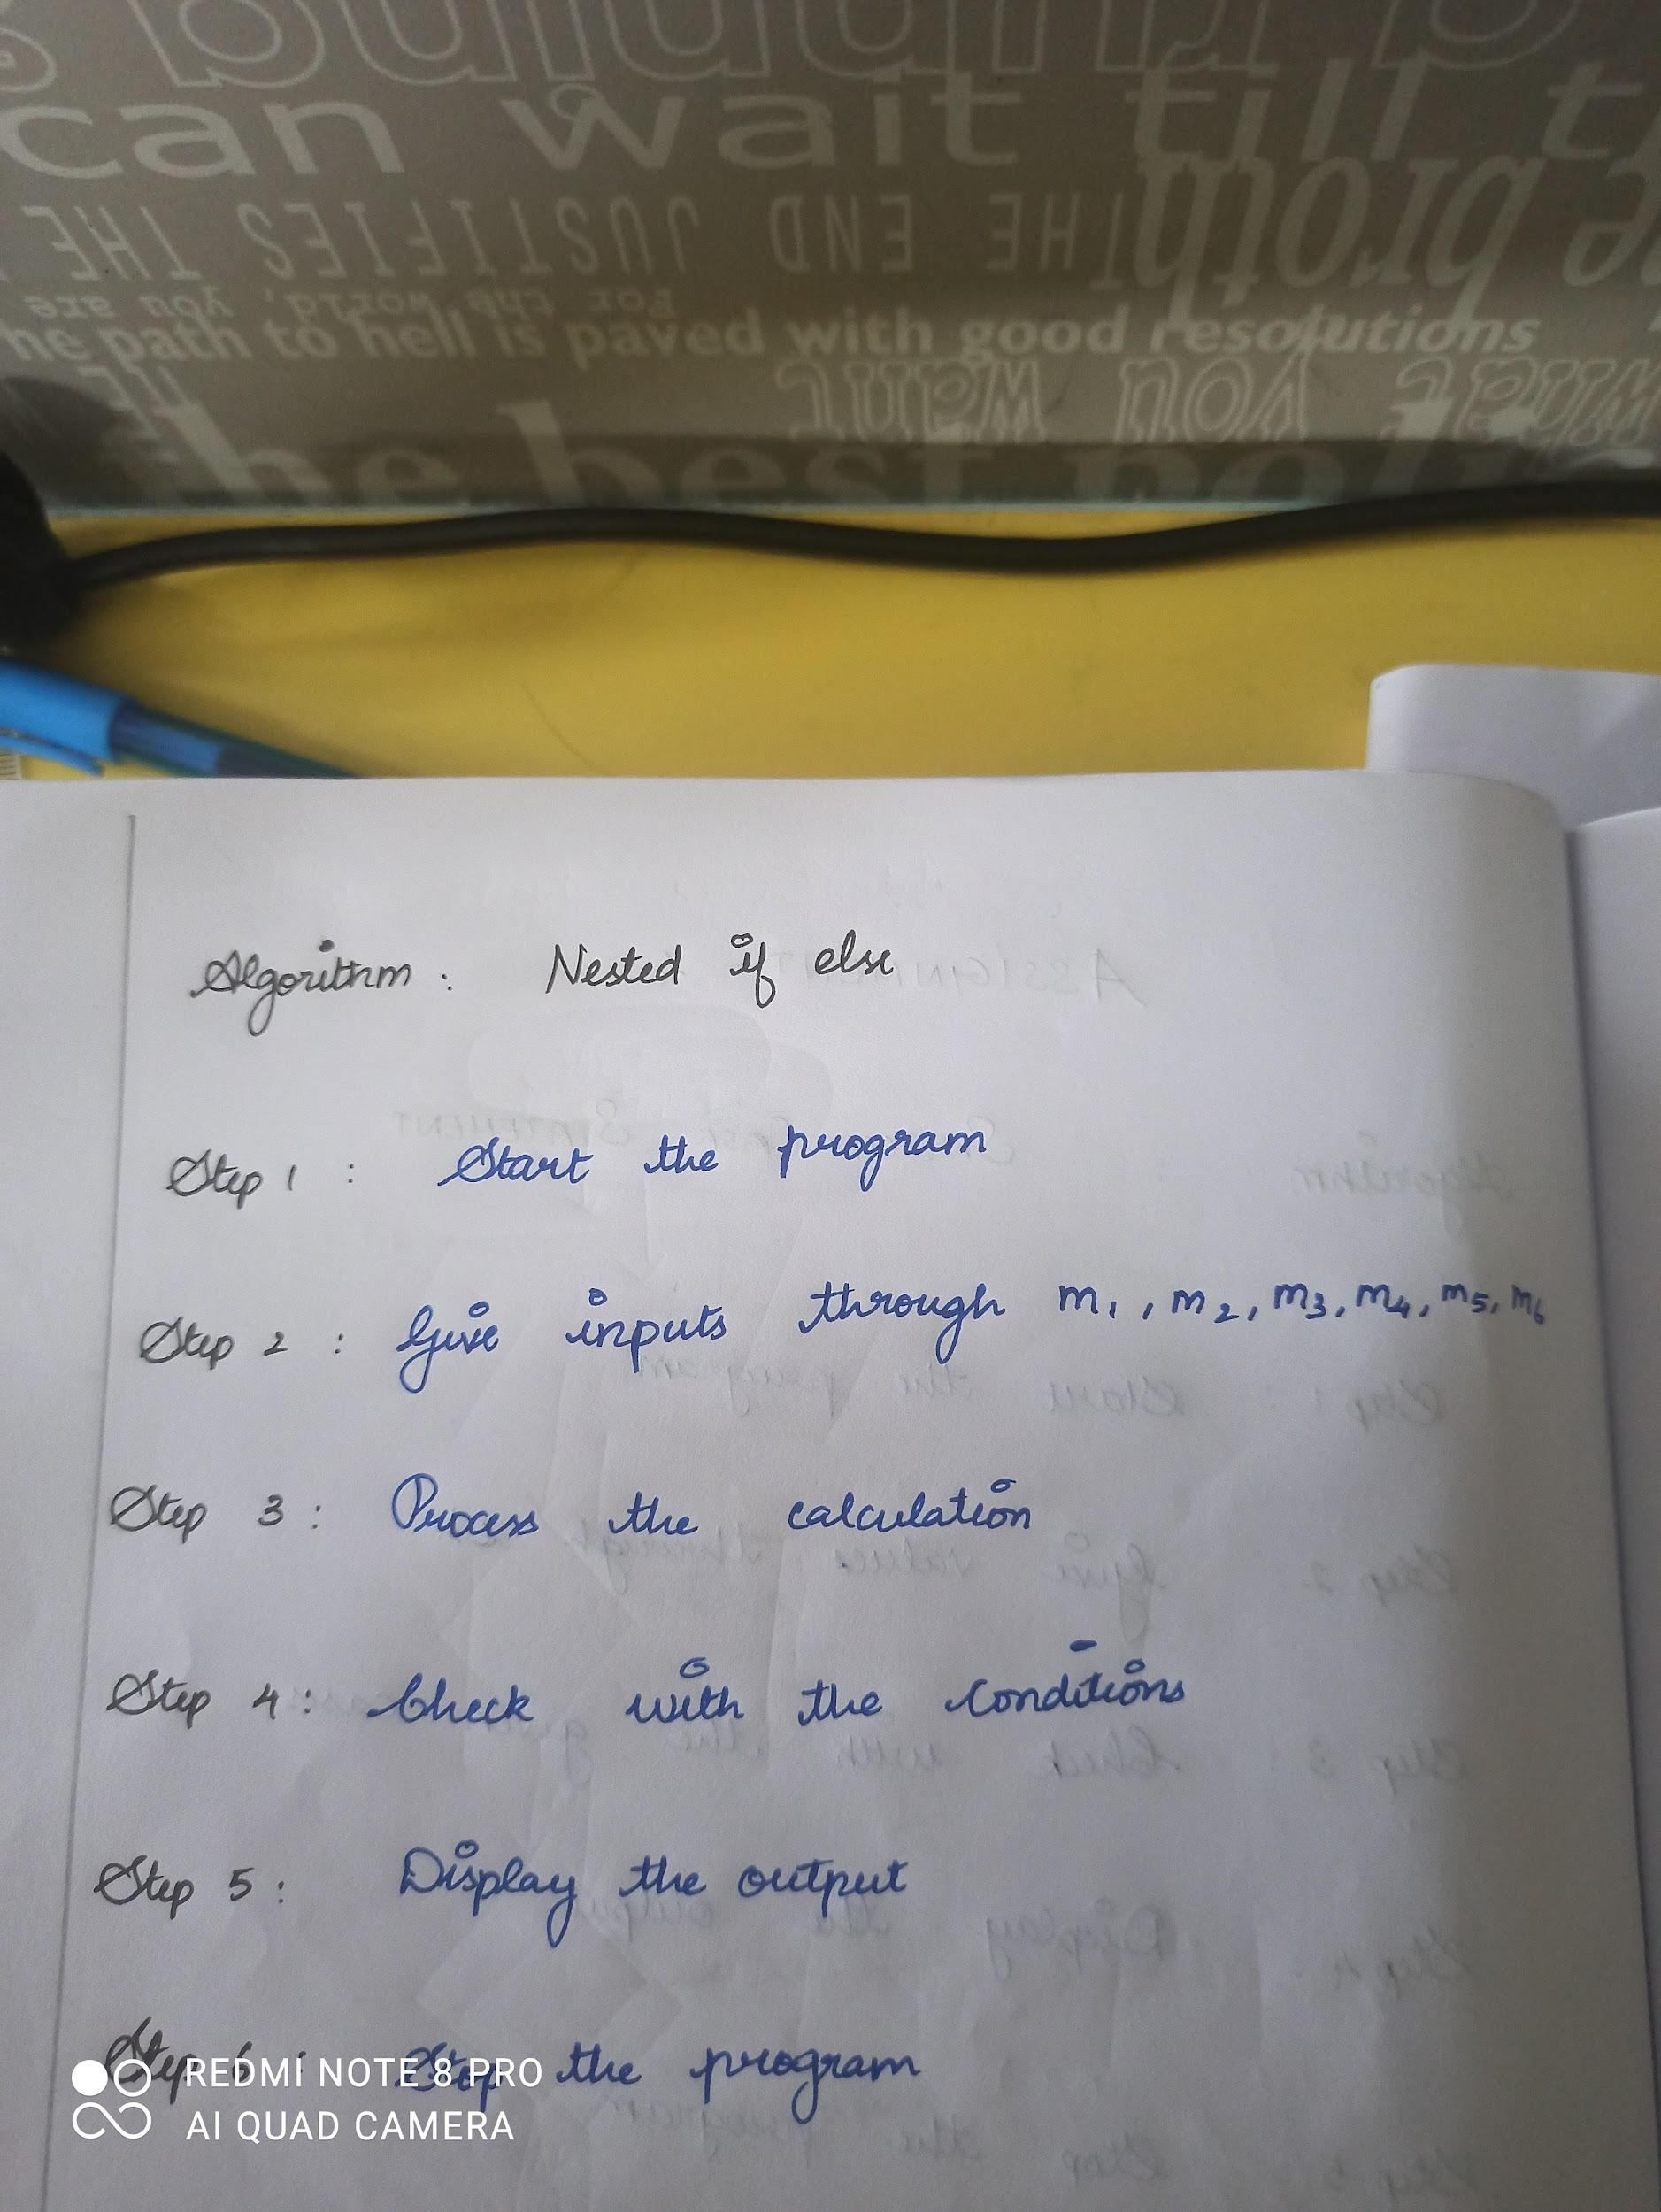 can wait till t
THE END JUSTIFIES THE
For the world, you are
he path to hell is paved with good resolutions
what you want
the best poli
Algorithm : Nested if else
Step 1 : Start the program
Step 2 : Give inputs through m1, m2, m3, m4, m5, m6
Step 3 : Process the calculation
Step 4 : Check with the conditions
Step 5 : Display the output
Step 6 : Stop the program
REDMI NOTE 8 PRO
AI QUAD CAMERA